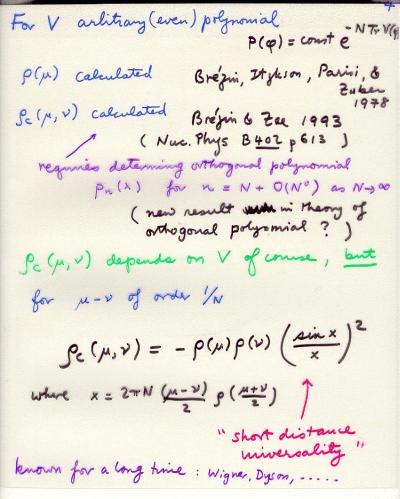 4
For V arbitrary (even) polynomial
P(φ) = const e^{-N Tr V(φ)}
ρ(μ) calculated Brézin, Itzykson, Parisi, & Zuber 1978
ρ_c(μ, ν) calculated Brézin & Zee 1993
( Nuc. Phys B402 p 613 )
requires determining orthogonal polynomial
P_n(x) for n = N + O(N⁰) as N→∞
( new result in theory of
orthogonal polynomial ? )
ρ_c(μ, ν) depends on V of course, but
for μ-ν of order 1/N
ρ_c(μ, ν) = - ρ(μ)ρ(ν) (sin x / x)²
where x = 2πN (μ-ν)/2 ρ((μ+ν)/2)
"short distance
universality"
known for a long time : Wigner, Dyson, .....